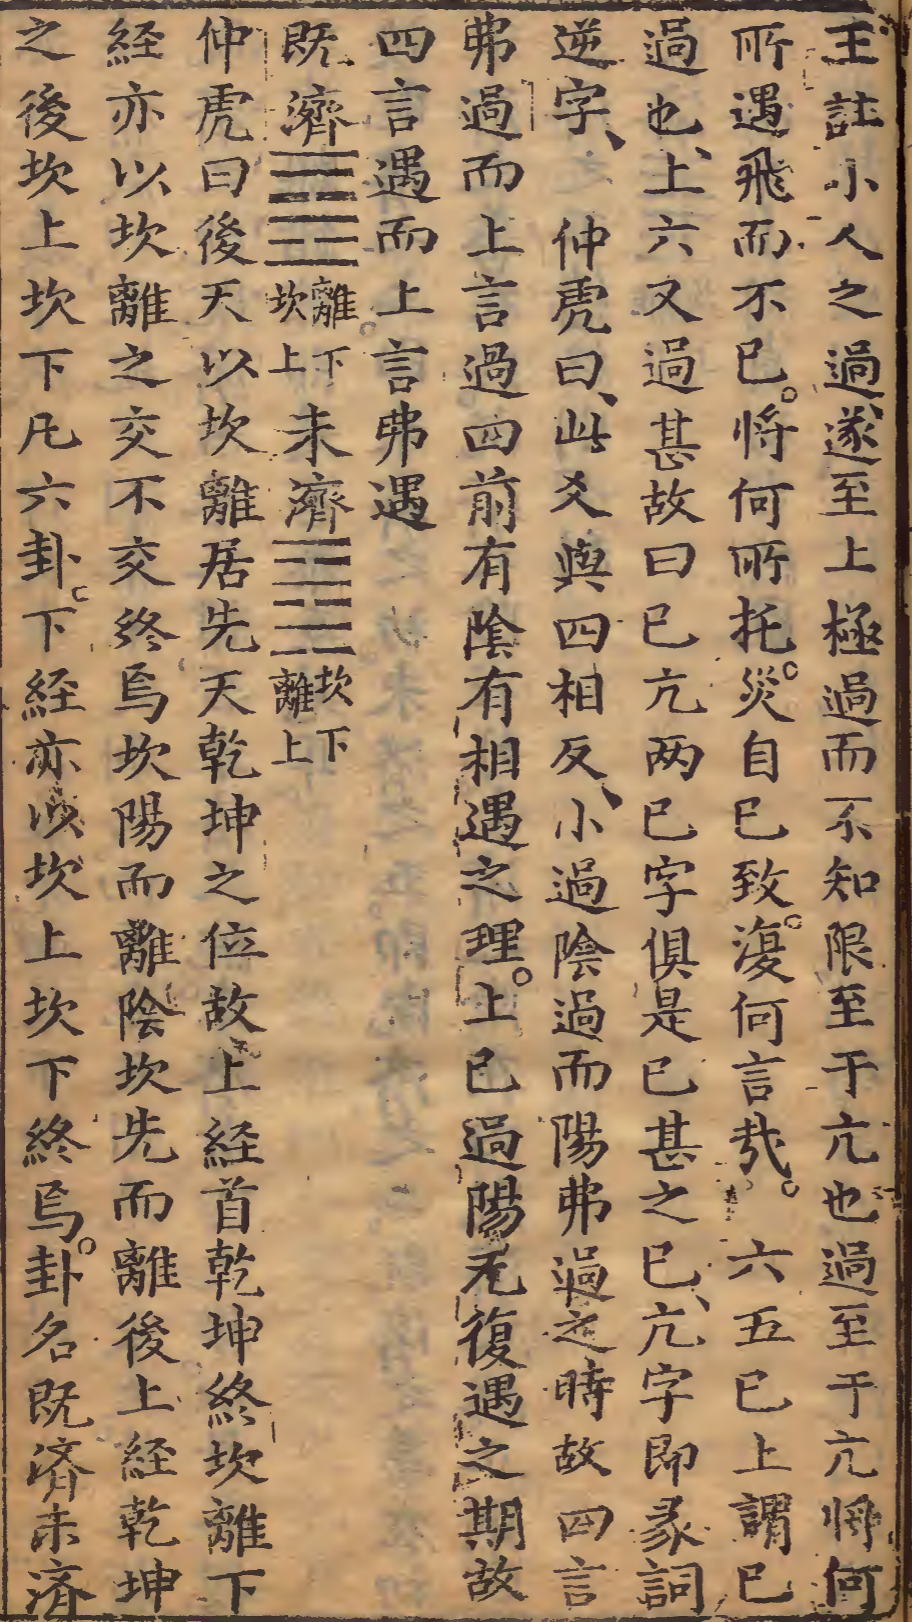 王註小人之過遂至上極過而不知限至于亢也過至于亢將何
所遇飛而不已將何所托災自己致復何言哉 六五已上謂已
過也上六又過甚故曰已亢两已字俱是已甚之已亢字即彖詞
逆字 仲虎曰此爻與四相反小過陰過而陽弗過之時故四言
弗過而上言過四前有陰有相遇之理上已過陽无復遇之期故
四言遇而上言弗遇
既濟䷾離下坎上未濟䷿坎下離上
仲虎曰後天以坎離居先天乾坤之位故上経首乾坤終坎離下
経亦以坎離之交不交終焉坎陽而離陰坎先而離後上経乾坤
之後坎上坎下凡六卦下経亦以坎上坎下終焉卦名既济未济